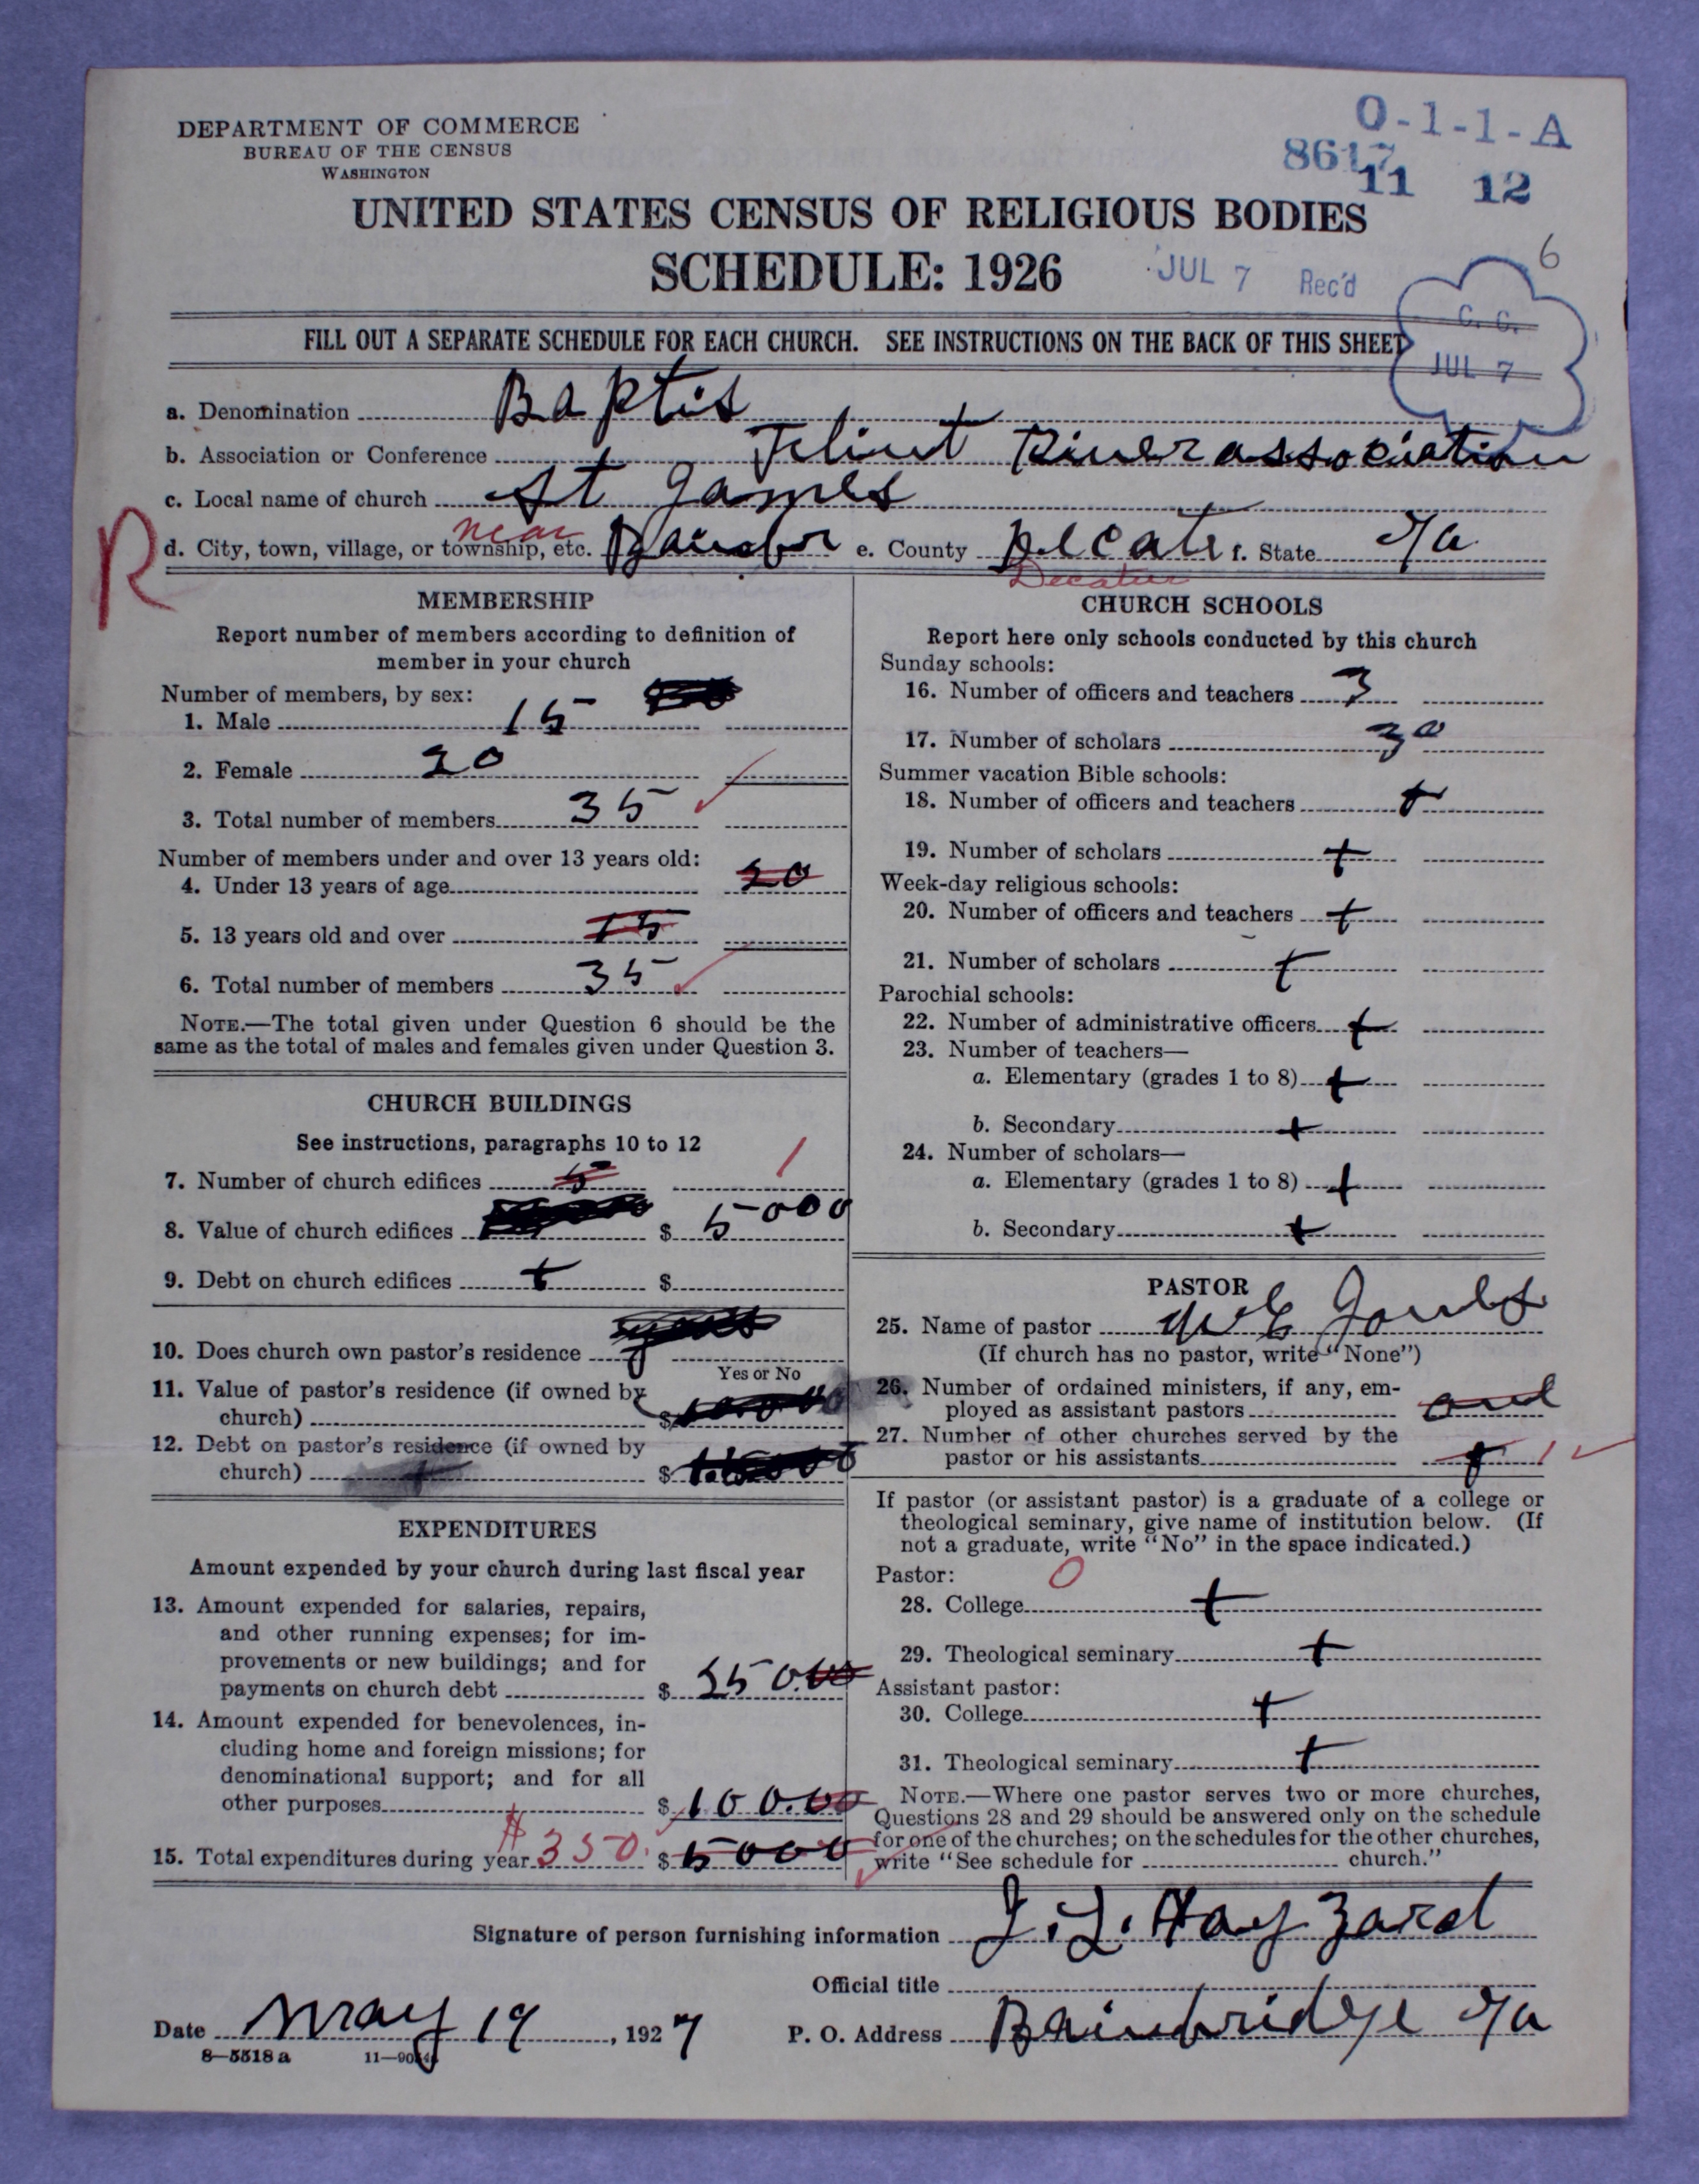 DEPARTMENT OF COMMERCE
BUREAU OF THE CENSUS
WASHINGTON
O-1-1-A
8617
11 12
UNITED STATES CENSUS OF RELIGIOUS BODIES
SCHEDULE: 1926
JUL 7 Rec'd
6
C. C.
JUL 7
FILL OUT A SEPARATE SCHEDULE FOR EACH CHURCH. SEE INSTRUCTIONS ON THE BACK OF THIS SHEET
a. Denomination Baptis
b. Association or Conference Flint River association
c. Local name of church St James
R
near
d. City, town, village, or township, etc. e. County Decater f. State Ga
Decatur
MEMBERSHIP
Report number of members according to definition of
member in your church
Number of members, by sex:
1. Male 15
2. Female 20
3. Total number of members 35
Number of members under and over 13 years old:
4. Under 13 years of age 20
5. 13 years old and over 15
6. Total number of members 35
NOTE.—The total given under Question 6 should be the
same as the total of males and females given under Question 3.
CHURCH BUILDINGS
See instructions, paragraphs 10 to 12
7. Number of church edifices 5 1
8. Value of church edifices $ 5000
9. Debt on church edifices + $
10. Does church own pastor's residence
Yes or No
11. Value of pastor's residence (if owned by
church) $
12. Debt on pastor's residence (if owned by
church) + $
EXPENDITURES
Amount expended by your church during last fiscal year
13. Amount expended for salaries, repairs,
and other running expenses; for im-
provements or new buildings; and for
payments on church debt $ 250.00
14. Amount expended for benevolences, in-
cluding home and foreign missions; for
denominational support; and for all
other purposes $ 100.00
15. Total expenditures during year $350. $ 5000
CHURCH SCHOOLS
Report here only schools conducted by this church
Sunday schools:
16. Number of officers and teachers 3
17. Number of scholars 30
Summer vacation Bible schools:
18. Number of officers and teachers +
19. Number of scholars +
Week-day religious schools:
20. Number of officers and teachers +
21. Number of scholars +
Parochial schools:
22. Number of administrative officers +
23. Number of teachers—
a. Elementary (grades 1 to 8) +
b. Secondary +
24. Number of scholars—
a. Elementary (grades 1 to 8) +
b. Secondary +
PASTOR
25. Name of pastor
(If church has no pastor, write "None")
26. Number of ordained ministers, if any, em-
ployed as assistant pastors
27. Number of other churches served by the
pastor or his assistants + 1
If pastor (or assistant pastor) is a graduate of a college or
theological seminary, give name of institution below. (If
not a graduate, write "No" in the space indicated.)
Pastor: 0
28. College +
29. Theological seminary +
Assistant pastor:
30. College +
31. Theological seminary +
NOTE.—Where one pastor serves two or more churches,
Questions 28 and 29 should be answered only on the schedule
for one of the churches; on the schedules for the other churches,
write "See schedule for church."
Signature of person furnishing information J. L. Hayzard
Official title
Date May 19, 1927 P. O. Address Bainbridge Ga
8—5518 a